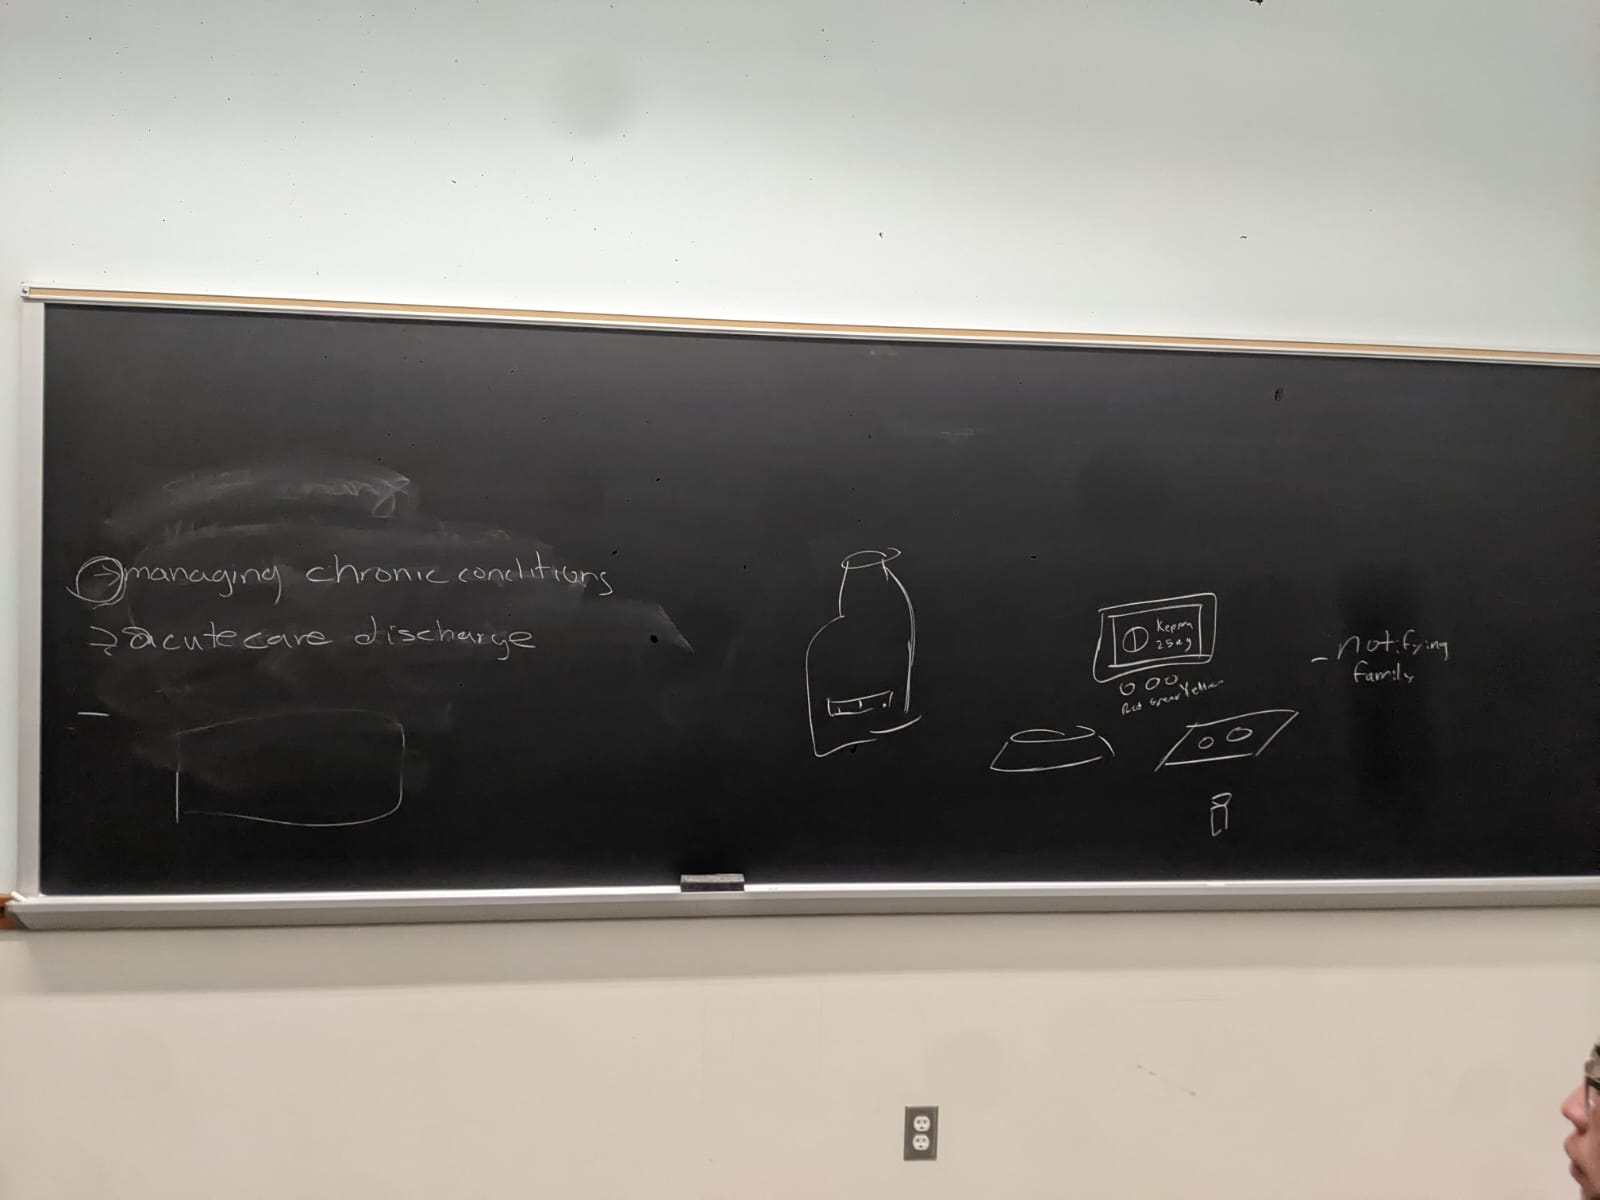 → managing chronic conditions
→ acute care discharge
—
1 Keppra
25mg
Red Green Yellow
- notifying
family